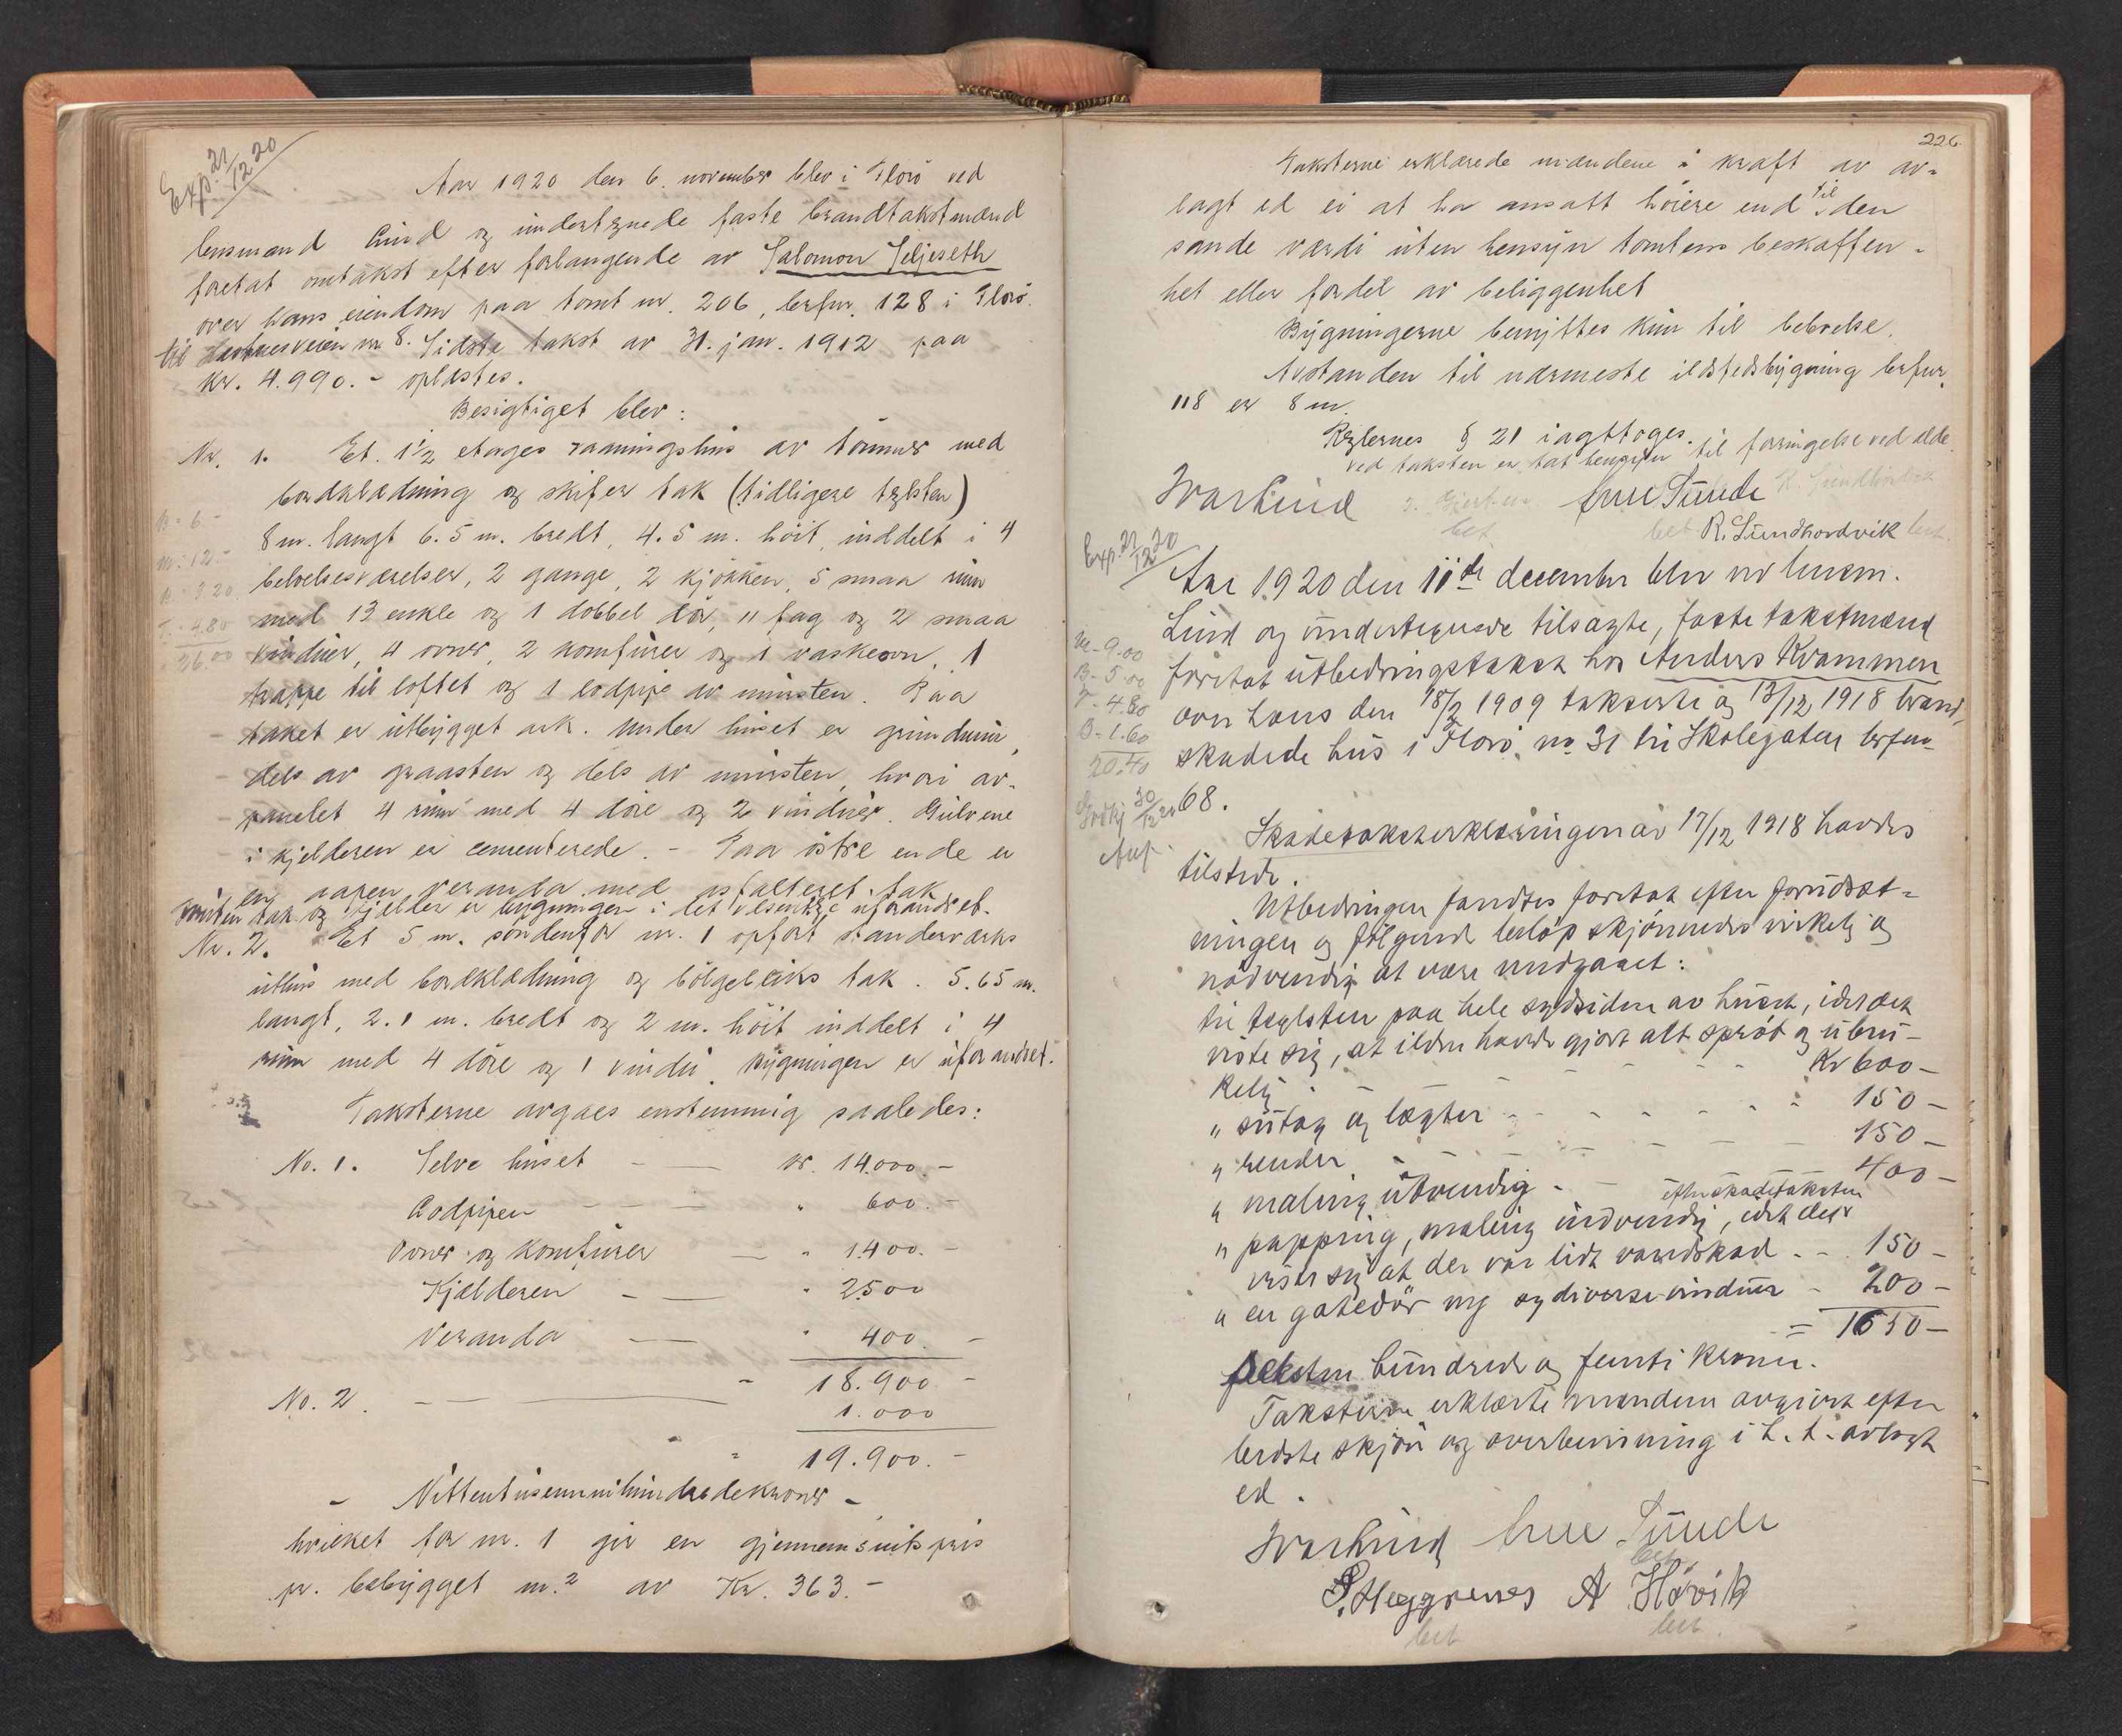 Exp. 21/12 20
Aar 1920 den 6. november blev i Florö ved
lensmand Lind og undertegnede faste brandtakstmænd
foretat omtakst efter forlangende av Salomon Seljeseth
over hans eiendom paa tomt nr. 206, brfnr. 128 i Florö.
til nr 8. Sidste takst av 31. jan. 1912 paa
Kr. 4.990.- oplæstes.
Besigtiget blev:
Nr. 1. Et 1½ etages vaaningshus av tömmer med
bordklædning og skifer tak (tidligere teglsten)
8 m. langt 6.5 m. bredt, 4.5 m. höit, inddelt i 4
beboelsesværelser, 2 gange, 2 kjökken, 5 smaa rum
med 13 enkle og 1 dobbel dör, 11 fag og 2 smaa
vinduer, 4 ovner, 2 komfurer og 1 vaskeovn, 1
trappe til loftet og 1 lodpipe av mursten. Paa
taket er utbygget ark. Under huset er grundmur,
dels av graasten og dels av mursten, hvori av-
panelet 4 rum med 4 döre og 2 vinduer. Gulvene
i kjelderen er cementerede. - Paa östre ende er
en aapen veranda med asfalteret tak
tak og kjelder er bygningen i det uforandret.
Nr. 2. Et 5 m. söndenfor nr. 1 opfört standerværks
uthus med bordklædning og bölgebliks tak. 5.65 m.
langt, 2.1 m. bredt og 2 m. höit inddelt i 4
rum med 4 döre og 1 vindu. Bygningen er uforandret.
Taksterne avgaes enstemmig saaledes:
No. 1. Selve huset - — kr. 14.000.-
Lodpipen - — " 600.-
Ovner og komfurer — " 1400.-
Kjælderen - — " 2500
Veranda — " 400.-
" 18.900 -
No. 2. — 1.000
" 19.900.-
- Nittentusennihundredekroner -
hvilket for nr. 1 gir en gjennemsnitspris
pr. bebygget m.² av Kr. 363.-
B. 6.-
M. 12.-
B. 3.20
T. 4.80
26.00
226.
Taksterne erklærede mændene i kraft av av-
lagt ed ei at ha ansatt höiere end til den
sande værdi uten hensyn tomtens beskaffen-
het eller fordel av beliggenhet
Bygningerne benyttes kun til beboelse.
Avstanden til nærmeste ildstedsbygning brfnr.
118 er 8 m.
Reglernes § 21 iagttoges.
ved taksten er tat hensyn til forringelse ved ælde
Ivar Lind Arne Sunde
bet bet R. Sundhordvik bet.
Exp. 21/12 20
Aar 1920 den 11te december blev ved lensm.
Lind og undertegnede tilsagte, faste takstmænd
foretat utbedringstakst hos Anders Kvammen
over hans den 18/2 1909 takserte og 13/12 1918 brand-
skadede hus i Florö, no 31 til Skolegaten brfnr
68.
M - 9.00
B - 5.00
T - 4.80
B - 1.60
20.40
Godkj 30/12 20
Skadetakserklæringen av 17/12 1918 havdes
tilstede.
Utbedringen fandtes foretat efter forudsæt-
ningen og fölgende belöp skjönnedes virkelig og
nödvendig at være medgaaet:
til taglsten paa hele sydsiden av huset, idet det
viste sig, at ilden havde gjort alt spröt og ubru-
kelig - - - Kr 600 -
" sutag og lægter - - - 150 -
" render - - - 150 -
" maling utvendig - - 400 -
" papping, maling indvendig, idet det efter skadetaksten
viste sig at der var lidt vandskad - - 150 -
" en gatedör ny og diverse vinduer - 200 -
= 1650 -
seksten hundrede og femti kroner.
Taksterne erklærte mændene avgivet efter
bedste skjön og overbevisning i h. t. avlagt
ed.
Ivar Lind Arne Sunde
bet
S. Heggrenes A Hövik
bet bet.